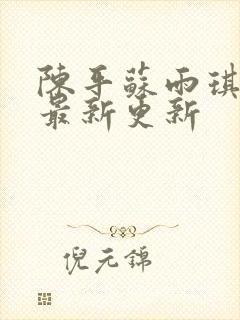 陳平蘇雨琪
最新更新
倪元錦